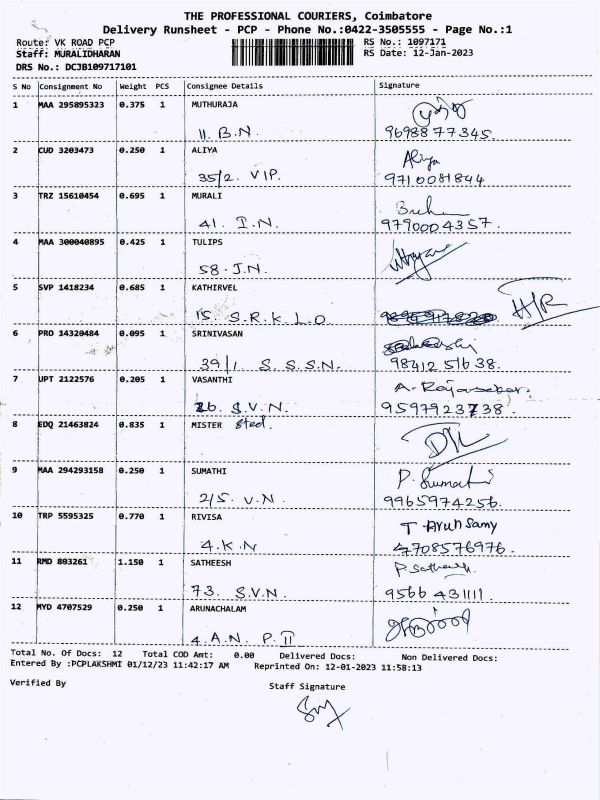 THE PROFESSIONAL COURIERS, Coimbatore
Delivery Runsheet - PCP - Phone No.:0422-3505555 - Page No.:1
Route: VK ROAD PCP RS No.: 1097171
Staff: MURALIDHARAN RS Date: 12-Jan-2023
DRS No.: DCJB109717101
S No Consignment No Weight PCS Consignee Details Signature
1 MAA 295895323 0.375 1 MUTHURAJA
11. B.N. 9698877345
2 CUD 3203473 0.250 1 ALIYA Aliya
35/2. VIP. 9710081844
3 TRZ 15610454 0.695 1 MURALI
41. I.N. 9790004357.
4 MAA 300040895 0.425 1 TULIPS
58. J.N.
5 SVP 1418234 0.685 1 KATHIRVEL H/R
15. S.R.K.L.O
6 PRO 14320484 0.095 1 SRINIVASAN
39/1 S.S.S.N. 98412 51638.
7 UPT 2122576 0.205 1 VASANTHI A. Rajasekar.
26. S.V.N. 9597923738.
8 EDQ 21463824 0.835 1 MISTER Steel.
9 MAA 294293158 0.250 1 SUMATHI P. Sumathi
2/5. V.N. 9965974256.
10 TRP 5595325 0.770 1 RIVISA T. Arun Samy
4.K.N 4708576976.
11 RMD 803261 1.150 1 SATHEESH P. Satheesh
73. S.V.N. 9566 431111.
12 MYD 4707529 0.250 1 ARUNACHALAM
4.A.N. P.II
Total No. Of Docs: 12 Total COD Amt: 0.00 Delivered Docs: Non Delivered Docs:
Entered By :PCPLAKSHMI 01/12/23 11:42:17 AM Reprinted On: 12-01-2023 11:58:13
Verified By Staff Signature